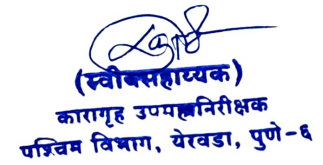 (स्वीयसहाय्यक)
कारागृह उपमहानिरीक्षक
पश्चिम विभाग, येरवडा, पुणे-६